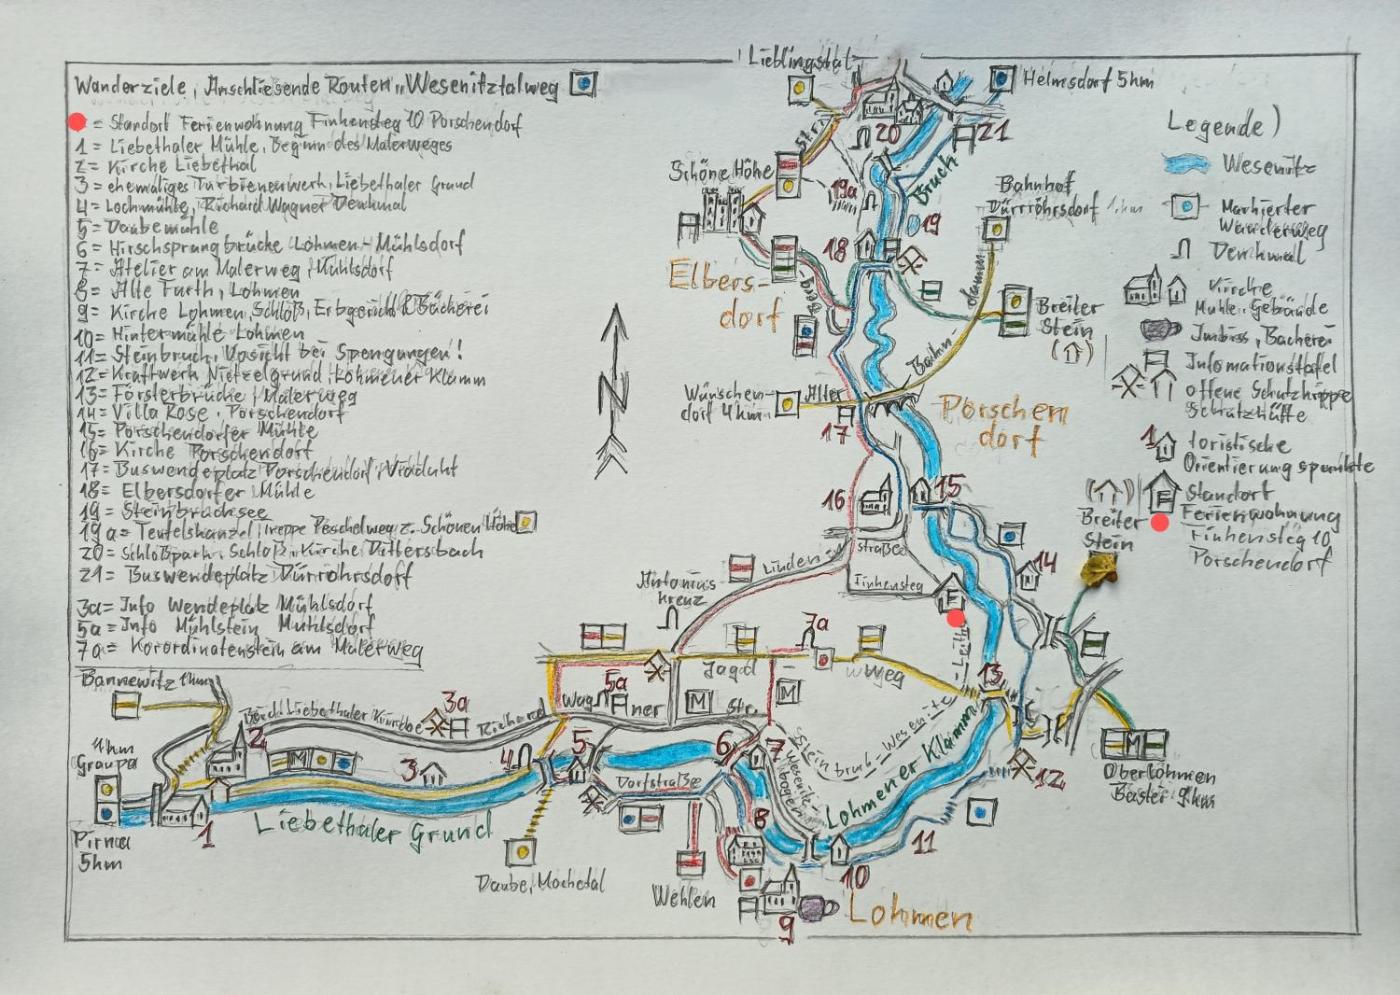 Wanderziele, Anschliesende Routen „Wesenitztalweg
= Standort Ferienwohnung Finkensteg 10 Porschendorf
1 = Liebethaler Mühle, Beginn des Malerweges
2 = Kirche Liebethal
3 = ehemaliges Turbienenwerk, Liebethaler Grund
4 = Lochmühle, Richard Wagner Denkmal
5 = Daubemühle
6 = Hirschsprungbrücke Lohmen - Mühlsdorf
7 = Atelier am Malerweg, Mühlsdorf
8 = Alte Furth, Lohmen
9 = Kirche Lohmen, Schloß, Erbgericht & Bäckerei
10 = Hintermühle Lohmen
11 = Steinbruch, Vosicht bei Spengungen!
12 = Kraftwerk Nietzelgrund, Lohmener Klamm
13 = Försterbrücke, Malerweg
14 = Villa Rose, Porschendorf
15 = Porschendorfer Mühle
16 = Kirche Porschendorf
17 = Buswendeplatz Porschendorf, Viadukt
18 = Elbersdorfer Mühle
19 = Steinbruchsee
19a = Teufelskanzel, treppe Peschelweg z. Schönen Höhe
20 = Schloßpark, Schloß, Kirche Dittersbach
21 = Buswendeplatz Dürröhrsdorf
3a = Info Wendeplatz Mühlsdorf
5a = Info Mühlstein Mühlsdorf
7a = Korordinatenstein am Malerweg
Lieblingstal
Helmsdorf 5km
20
21
Schöne Höhe
19a
Bruch
19
18
Bahnhof
Dürröhrsdorf 1km
Elbers-
dorf
Breiter
Stein
Wünschen-
dorf 4km
Alter
Bahn
damm
17
Porschen
dorf
16
15
Breiter
Stein
14
straße
Linden
Finkensteg
F
Antonius
kreuz
7a
Jagd
weg
13
5a
Wag
ner
M
Str.
M
Richard
Bannewitz 1km
3a
2
M
4km
Graupa
Pirna
5km
1
3
4
5
6
7
Dorfstraße
Liebethaler Grund
Daube, Mochetal
Wehlen
8
9
10
11
12
Steinbruch - Wesenitz
Wesenitz-
bogen
Lohmener Klamm
Lohmen
M
Oberlohmen
Bastei 9km
Legende)
Wesenitz
Markierter
Wanderweg
Denkmal
Kirche
Mühle, Gebäude
Imbiss, Bäckerei
Infomationstafel
offene Schutzhüppe
Schutzhütte
1
toristische
Orientierungspunkte
F
Standort
Ferienwohnung
Finkensteg 10
Porschendorf